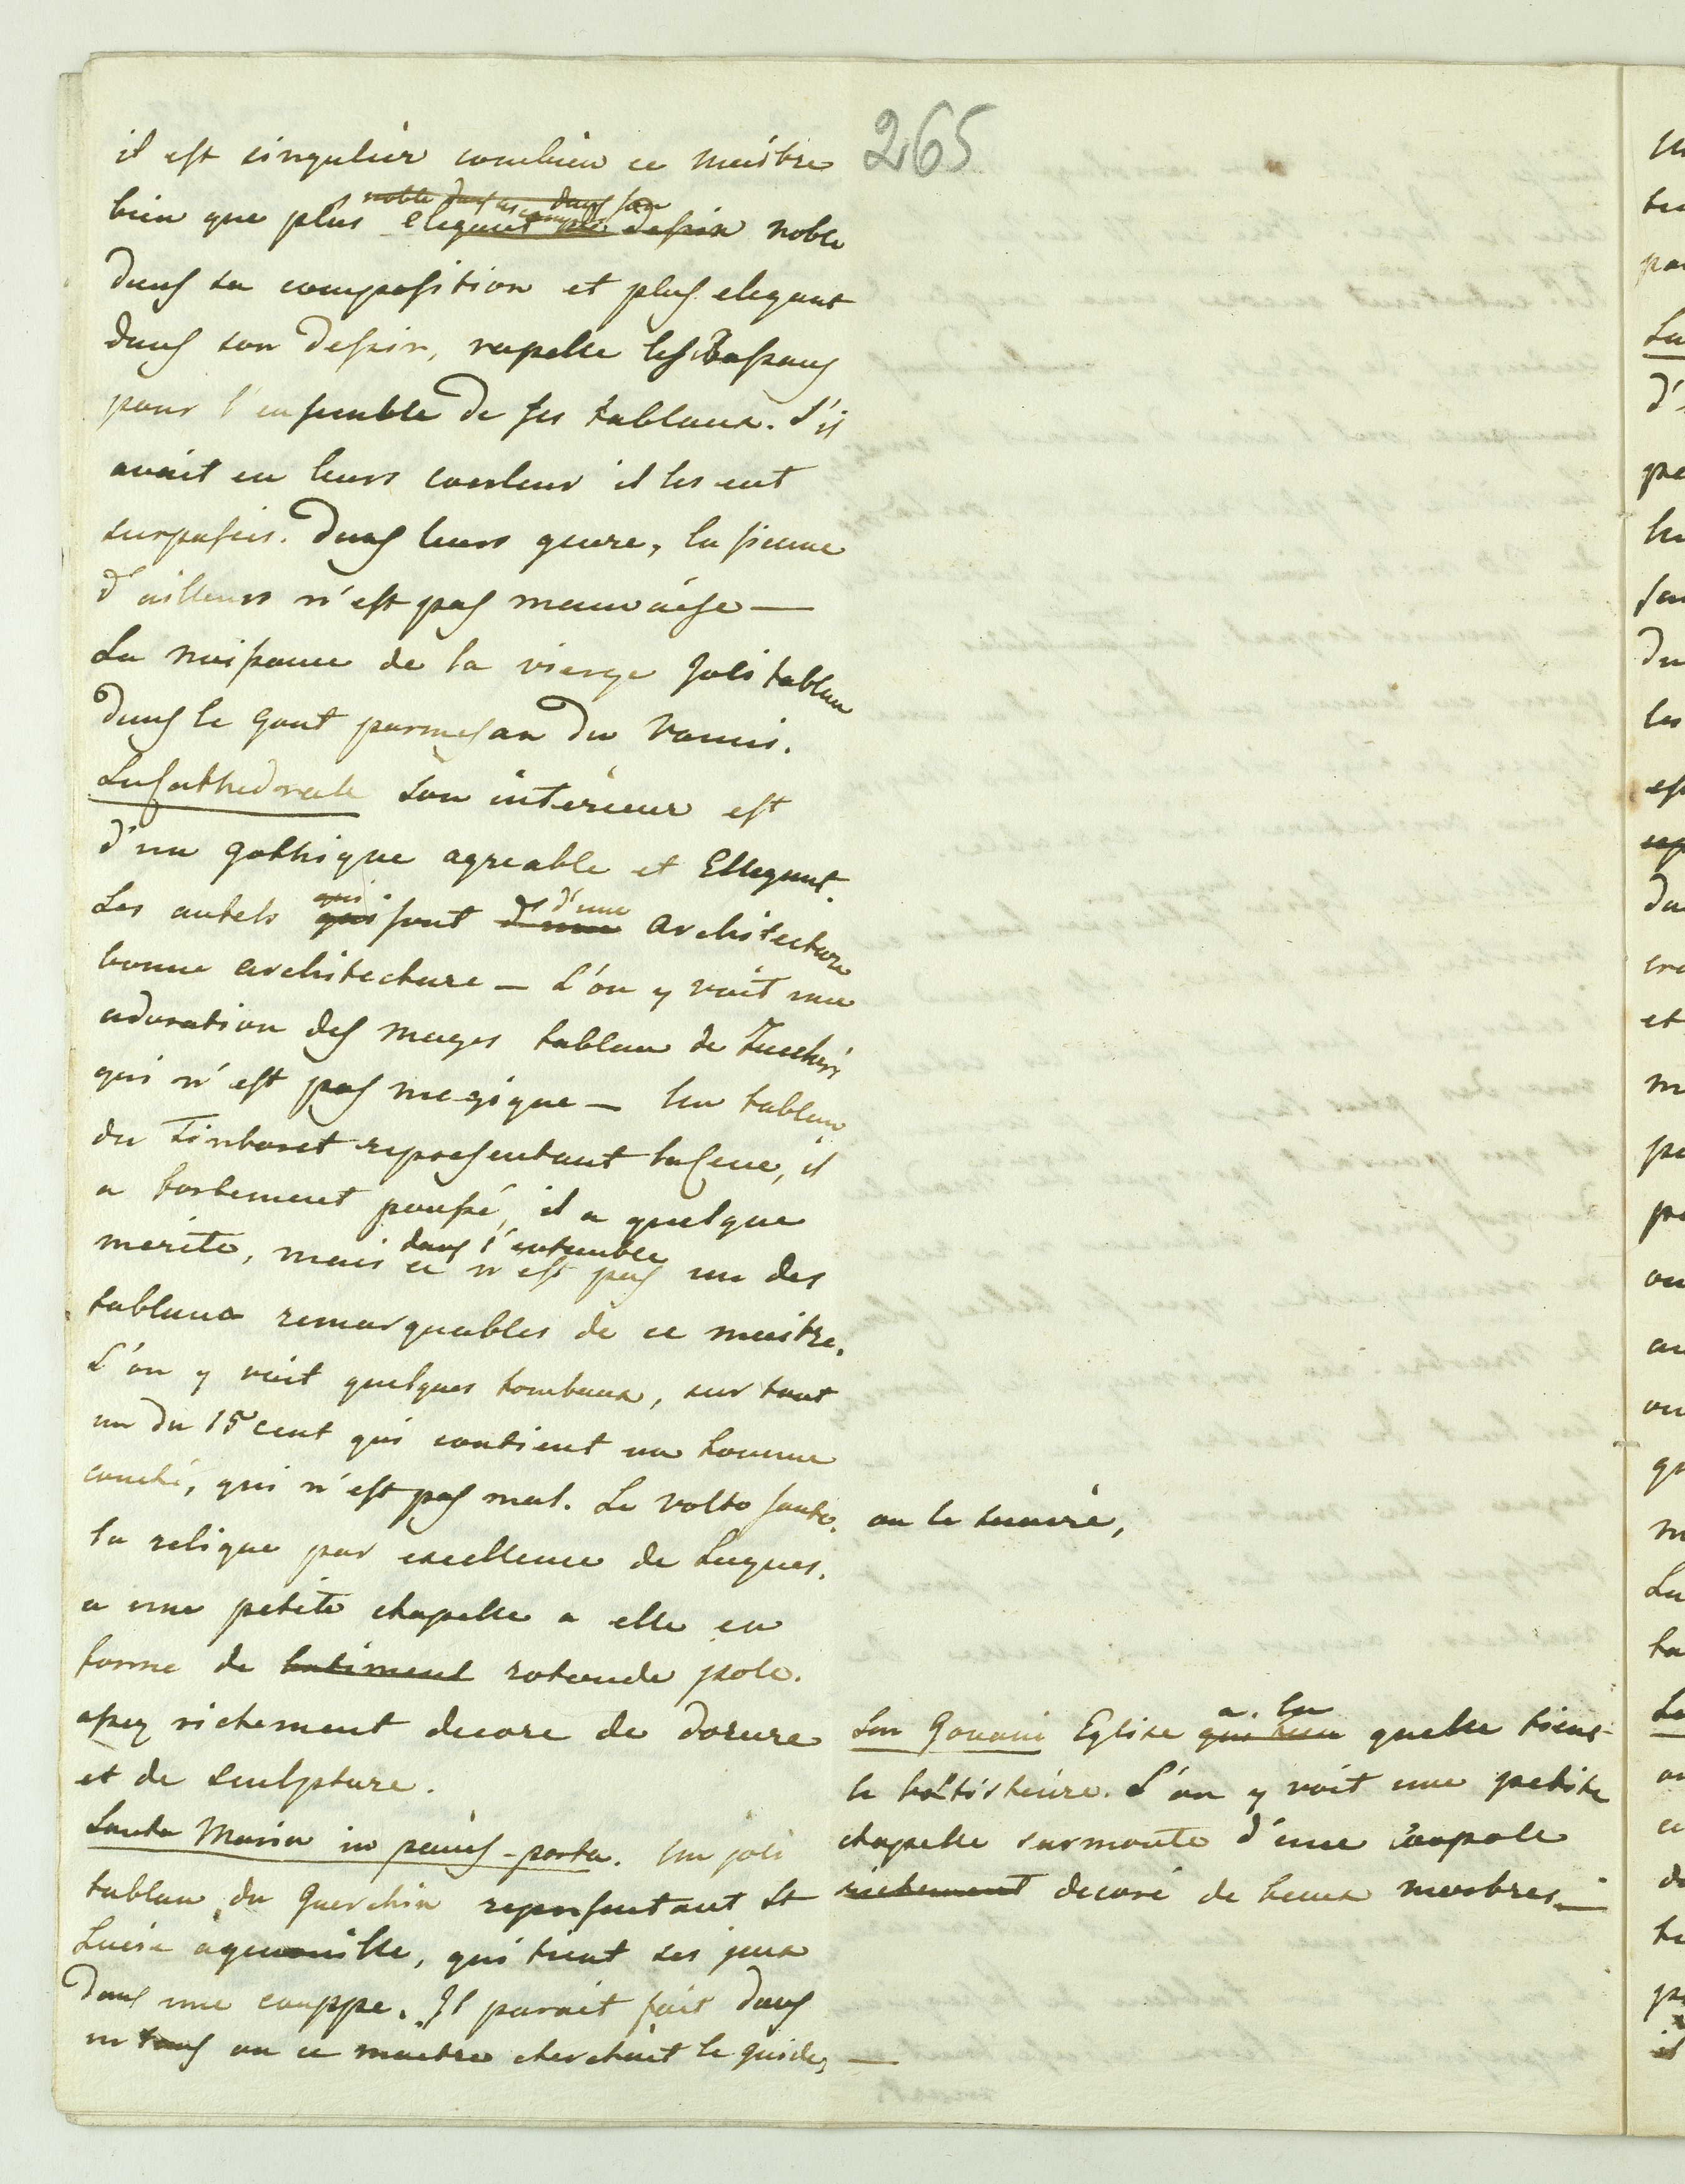 265
il est singulier combien ce maistre
bien que plus elegant dessin noble
noble dans sa dans son
dans sa composition et plus elegant
dans son dessin, rapelle les Bassans
pour l'ensemble de ses tableaux. S'il
avait eu leurs couleur il les eut
surpasses. dans leurs genre, la sienne
d'ailleurs n'est pas mauvaise —
La naissance de la vierge joli tableau
dans le gout parmesan du Vanni.
La Cathedrale son interieur est
d'un gothique agreable et Ellegant.
Les autels qui qui sont d'une d'une architecture
bonne architecture — L'on y voit une
adoration des mages tableau de Zucheri
qui n'est pas magique — Un tableau
du Tintoret representant la Cene, il
a fortement poussé, il a quelque
merite, mais dans l'ensemble ce n'est pas un des
tableaux remarquables de ce maistre.
L'on y voit quelques tombeaux, sur tout
un du 15 cent qui contient un homme
couché, qui n'est pas mal. Le volto santo.
ou le suaire,
la relique par excellence de Luques.
a une petite chapelle a elle en
forme de batiment rotonde jolie.
assez richement decore de dorure
et de sculpture.
San Govani Eglise qui a la quelle tient
le battisteire. L'on y voit une petite
chapelle surmonte d'une coupole
richement decoré de beaux marbres. —
Santa Maria in peius-porta. Un joli
tableau du Guerchin representant St
Lucie agenouille, qui tient ses jeux
dans une couppe. Il parait fait dans
un tems ou ce maitre cherchait le guide, —